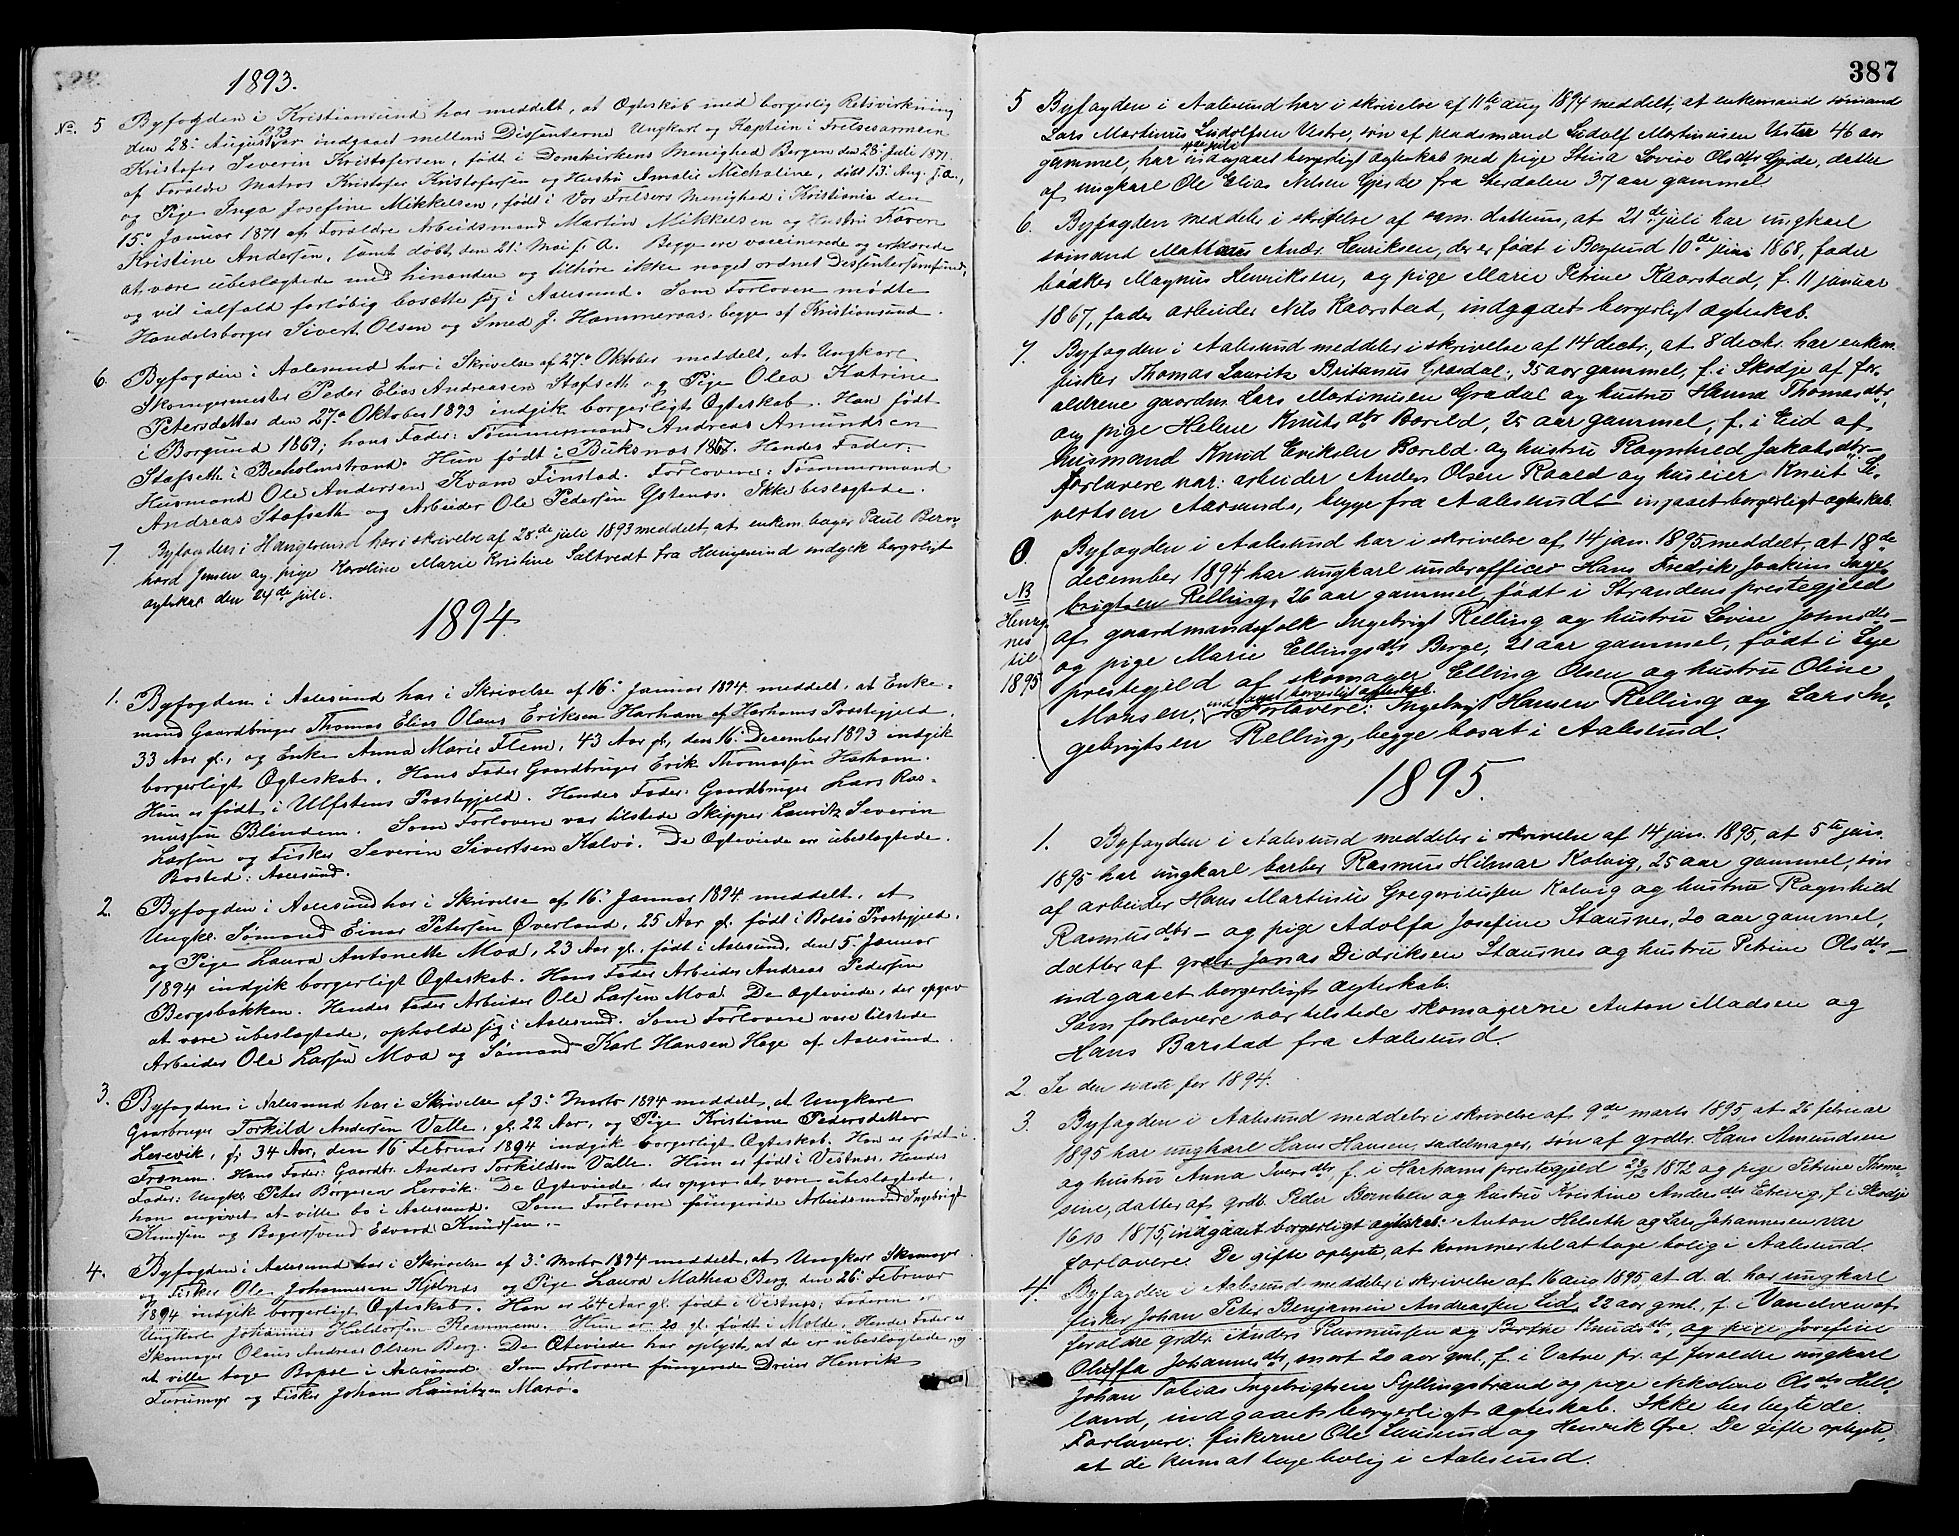 1893.
No. 5 Byfogden i Kristiansund har meddelt, at Ægteskab med borgerlig Retsvirkning
den 28. August 1893 var indgaaet mellem Dissenterne Ungkarl og Kaptein i Frelsesarmeen
Kristofer Severin Kristofersen, født i Domkirkens Menighed Bergen den 28. Juli 1871.
af Forældre Matros Kristofer Kristofersen og Hustru Amalie Micheline, døbt 13. Aug. s. A.,
og Pige Inga Josefine Mikkelsen, født i Vor Frelsers Menighed i Kristiania den
15. Januar 1871 af Forældre Arbeidsmand Martin Mikkelsen og Hustru Karen
Kristine Andersen, samt døbt den 21. Mai s. A. Begge ere vaccinerede og erklærede
at være ubeslægtede med hinanden og tilhøre ikke noget ordnet Dissentersamfund,
og vil ialfald foreløbig bosætte sig i Aalesund. Som Forlovere mødte
Handelsborger Sivert Olsen og Smed J. Hammeraas, begge af Kristiansund.
6. Byfogden i Aalesund har i Skrivelse af 27. Oktober meddelt, at Ungkarl
Skomagermester Peder Elias Andreasen Stafseth og Pige Olea Katrine
Petersdatter den 27. Oktober 1893 indgik borgerligt Ægteskab. Han født
i Borgund 1869; hans Fader: Tømmermand Andreas Amundsen
Stafseth i Buholmstrand. Hun født i Buksnæs 1867. Hendes Fader:
Husmand Ole Andersen Kvam Finstad. Forlovere: Tømmermand
Andreas Stafseth og Arbeider Ole Pedersen Ystenes. Ikke beslægtede.
7. Byfogden i Haugesund har i skrivelse af 28de juli 1893 meddelt, at enkem. bager Paul Bern-
hard Jensen og pige Karoline Marie Kristine Saltvedt fra Haugesund indgik borgerligt
ægteskab den 24de juli.
1894.
1. Byfogden i Aalesund har i Skrivelse af 16. Januar 1894 meddelt, at Enke-
mand Gaardbruger Thomas Elias Olaus Eriksen Harham af Harhams Præstegjeld,
33 Aar gl., og Enke Anna Marie Flem, 43 Aar gl., den 16. December 1893 indgik
borgerligt Ægteskab. Hans Fader Gaardbruger Erik Thomassen Harham.
Hun er født i Ulfstens Præstegjeld. Hendes Fader: Gaardbruger Lars Ras-
mussen Blindem. Som Forlovere var tilstede Skipper Lauritz Severin
Larsen og Fisker Severin Sivertsen Kalvø. De Ægteviede ere ubeslægtede.
Bosted: Aalesund.
2. Byfogden i Aalesund har i Skrivelse af 16. Januar 1894 meddelt, at
Ungkl. Sømand Einar Petersen Øverland, 25 Aar gl. født i Bolsø Præstegjeld,
og Pige Laura Antonette Moa, 23 Aar gl., født i Aalesund, den 5. Januar
1894 indgik borgerligt Ægteskab. Hans Fader Arbeider Andreas Pedersen
Bergsbakken. Hendes Fader Arbeider Ole Larsen Moa. De Ægteviede, der opgav
at være ubeslægtede, opholde sig i Aalesund. Som Forlovere vare tilstede
Arbeider Ole Larsen Moa og Sømand Karl Hansen Hage af Aalesund.
3. Byfogden i Aalesund har i Skrivelse af 3. Marts 1894 meddelt, at Ungkarl
Gaarbruger Torkild Andersen Valle, gl. 22 Aar, og Pige Kristiane Pedersdatter
Lerevik, gl. 34 Aar, den 16 Februar 1894 indgik borgerligt Ægteskab. Han er født i
Frænen. Hans Fader: Gaardbr. Anders Torkildsen Valle. Hun er født i Vestnæs. Hendes
Fader: Ungkl. Peter Borgersen Lervik. De Ægteviede, der opgav at være ubeslægtede,
han angivet at ville bo i Aalesund. Som Forlovere fungerede Arbeidsmand Ingebrigt
Knudsen og Bagersvend Edvard Knudsen.
4. Byfogden i Aalesund har i Skrivelse af 3. Marts 1894 meddelt, at Ungkarl Skomager
og Fisker Ole Johannesen Kjelnæs og Pige Laura Mathea Berg den 26. Februar
1894 indgik borgerligt Ægteskab. Han er 24 Aar gl. født i Vestnæs; Faderen er
Ungkarl Johannes Haldorsen Remmem. Hun er 20 gl. født i Molde, Hendes Fader er
Skomager Olaus Andreas Olsen Berg. De Ægteviede har oplyst, at de er ubeslægtede, og
at ville tage Bopæl i Aalesund. Som Forlovere fungerede Dreier Henrik
Furumyr og Fisker Johan Lauritzen Marø.
387
5 Byfogden i Aalesund har i skrivelse af 11te aug 1894 meddelt, at enkemand sømand
Lars Martinus Ludolfsen Vestre, søn af pladsmand Ludolf Martinusen Vestre 46 aar
gammel, har juli indgaaet borgerligt ægteskab med pige Stina Lovise Olsdtr Gjerde, datter
af ungkarl Ole Elias Nilsen Gjerde fra Stordalen 37 aar gammel
6. Byfogden meddeler i skrivelse af sam. dattum, at 21de juli har ungkarl
sømand Mathæus Andr. Henriksen, der er født i Borgund 10de juni 1868, fader
bødker Magnus Henriksen, og pige Marie Petrine Kaarstad, f. 11 januar
1867, fader arbeider Nils Kaarstad, indgaaet borgerligt ægteskab.
7. Byfogden i Aalesund meddeler i skrivelse af 14 decbr., at 8 decbr. har enkem.
fisker Thomas Lauritz Britanus Grasdal, 35 aar gammel, f. i Skodje af for-
ældrene gaardm. Lars Martinusen Gradal og hustru Hanna Thomasdtr,
og pige Helene Knutsdtr Boreld, 25 aar gammel, f. i Eid af
husmand Knud Eriksen Boreld og hustru Ragnhild Jakobsdtr -
forlovere var: arbeider Anders Olsen Raald og huseier Kneit Si-
vertsen Aarsund, begge fra Aalesund - ingaaet borgerligt ægteskab.
0. Byfogden i Aalesund har i skrivelse af 14 jan. 1895 meddelt, at 18de
december 1894 har ungkarl underofficer Hans Fredrik Joakim Inge-
brigtsen Relling, 26 aar gammel, født i Strandens prestegjeld
af gaardmandsfolk Ingebrigt Relling og hustru Lovise Johnsdtr -
og pige Marie Ellingsdtr Borge, 21 aar gammel, født i Lye
prestegjeld af skomager Elling Olsen og hustru Oline
Monsen, indgaaet borgerligt ægteskab. Forlovere: Ingebrigt Hansen Relling og Lars In-
gebrigtsen Relling, begge bosat i Aalesund.
NB
Henreg-
nes
til
1895
1895.
1. Byfogden i Aalesund meddeler i skrivelse af 14 jan. 1895, at 5te jan.
1895 har ungkarl barber Rasmus Hilmar Kolvig, 25 aar gammel, søn
af arbeider Hans Martinus Gregoriussen Kolvig og hustru Ragnhild
Rasmusdtr - og pige Adolfa Josefine Stavsnes, 20 aar gammel,
datter af grdr Jonas Didriksen Stavsnes og hustru Petrine Olsdtr -
indgaaet borgerligt ægteskab.
Som forlovere var tilstede skomagerne Anton Madsen og
Hans Barstad fra Aalesund.
2. Se den sidste for 1894.
3. Byfogden i Aalesund meddeler i skrivelse af 9de marts 1895 at 26 februar
1895 har ungkarl Hans Hansen, sadelmager, søn af grdbr. Hans Amundsen
og hustru Anna Iversdtr f. i Harhams prestegjeld 22/2 1872 og pige Petrine Thoma-
sine, datter af grdb. Peder og hustru Kristine Andersdtr Ekevig, f. i Skodje
16/10 1875, indgaaet borgerligt ægteskab. Anton Helseth og Lars Johannesen var
forlovere. De gifte oplyste, at kommer til at tage bolig i Aalesund.
4. Byfogden i Aalesund meddeler i skrivelse af 16 aug 1895 at d. d. har ungkarl
fisker Johan Peter Benjamin Andreassen Eid, 22 aar gml., f. i Vanelven af
forældre grdbr. Anders Rasmussen og Berthe Knudsdtr, og pige Josefine
Oluffa Johannesdtr, snart 20 aar gml., f. i Vatne pr. af forældre ungkarl
Johan Tobias Ingebrigtsen Fyllingstrand og pige Nikoline Olsdtr Hel-
land, indgaaet borgerligt ægteskab. Ikke beslægtede.
Forlovere: fiskerne Ole Husund og Henrik Øre. De gifte oplyste,
at de kom at tage bolig i Aalesund.